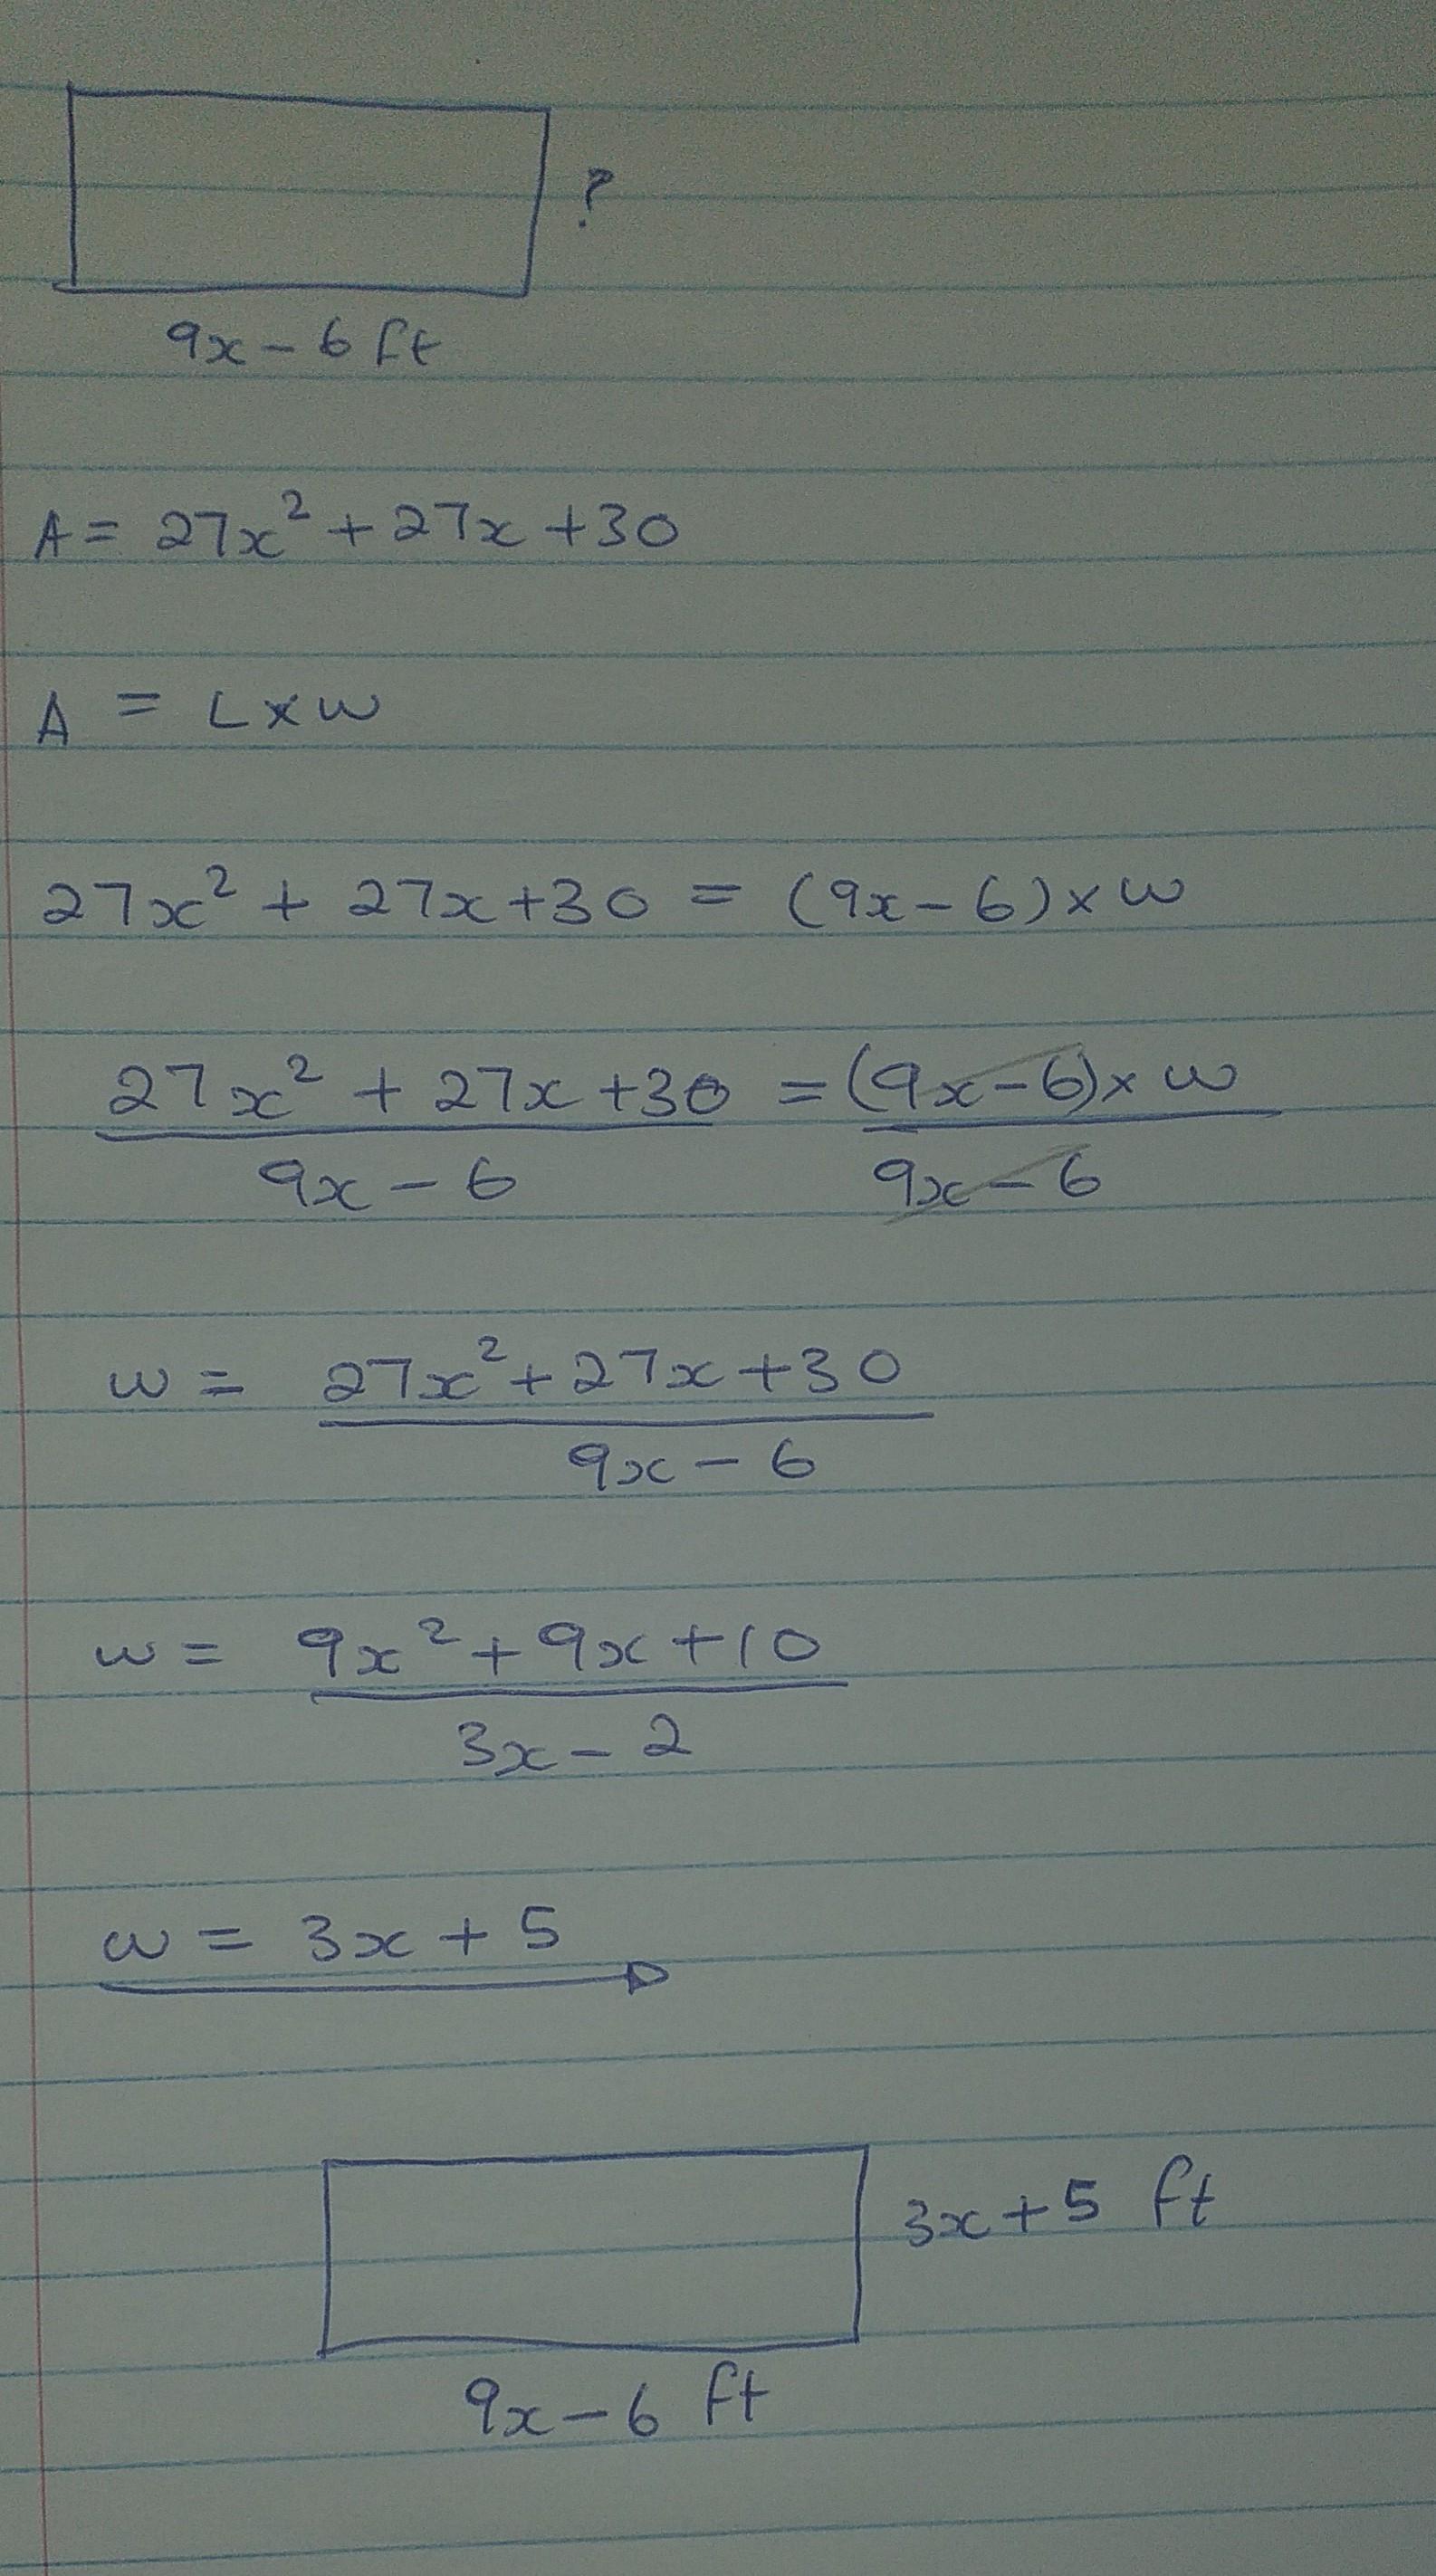 ?
9x - 6 ft
A = 27x² + 27x + 30
A = L × w
27x² + 27x + 30 = (9x - 6) × w
27x² + 27x + 30 = (9x - 6) × w
9x - 6 9x - 6
w = 27x² + 27x + 30
9x - 6
w = 9x² + 9x + 10
3x - 2
w = 3x + 5
3x + 5 ft
9x - 6 ft